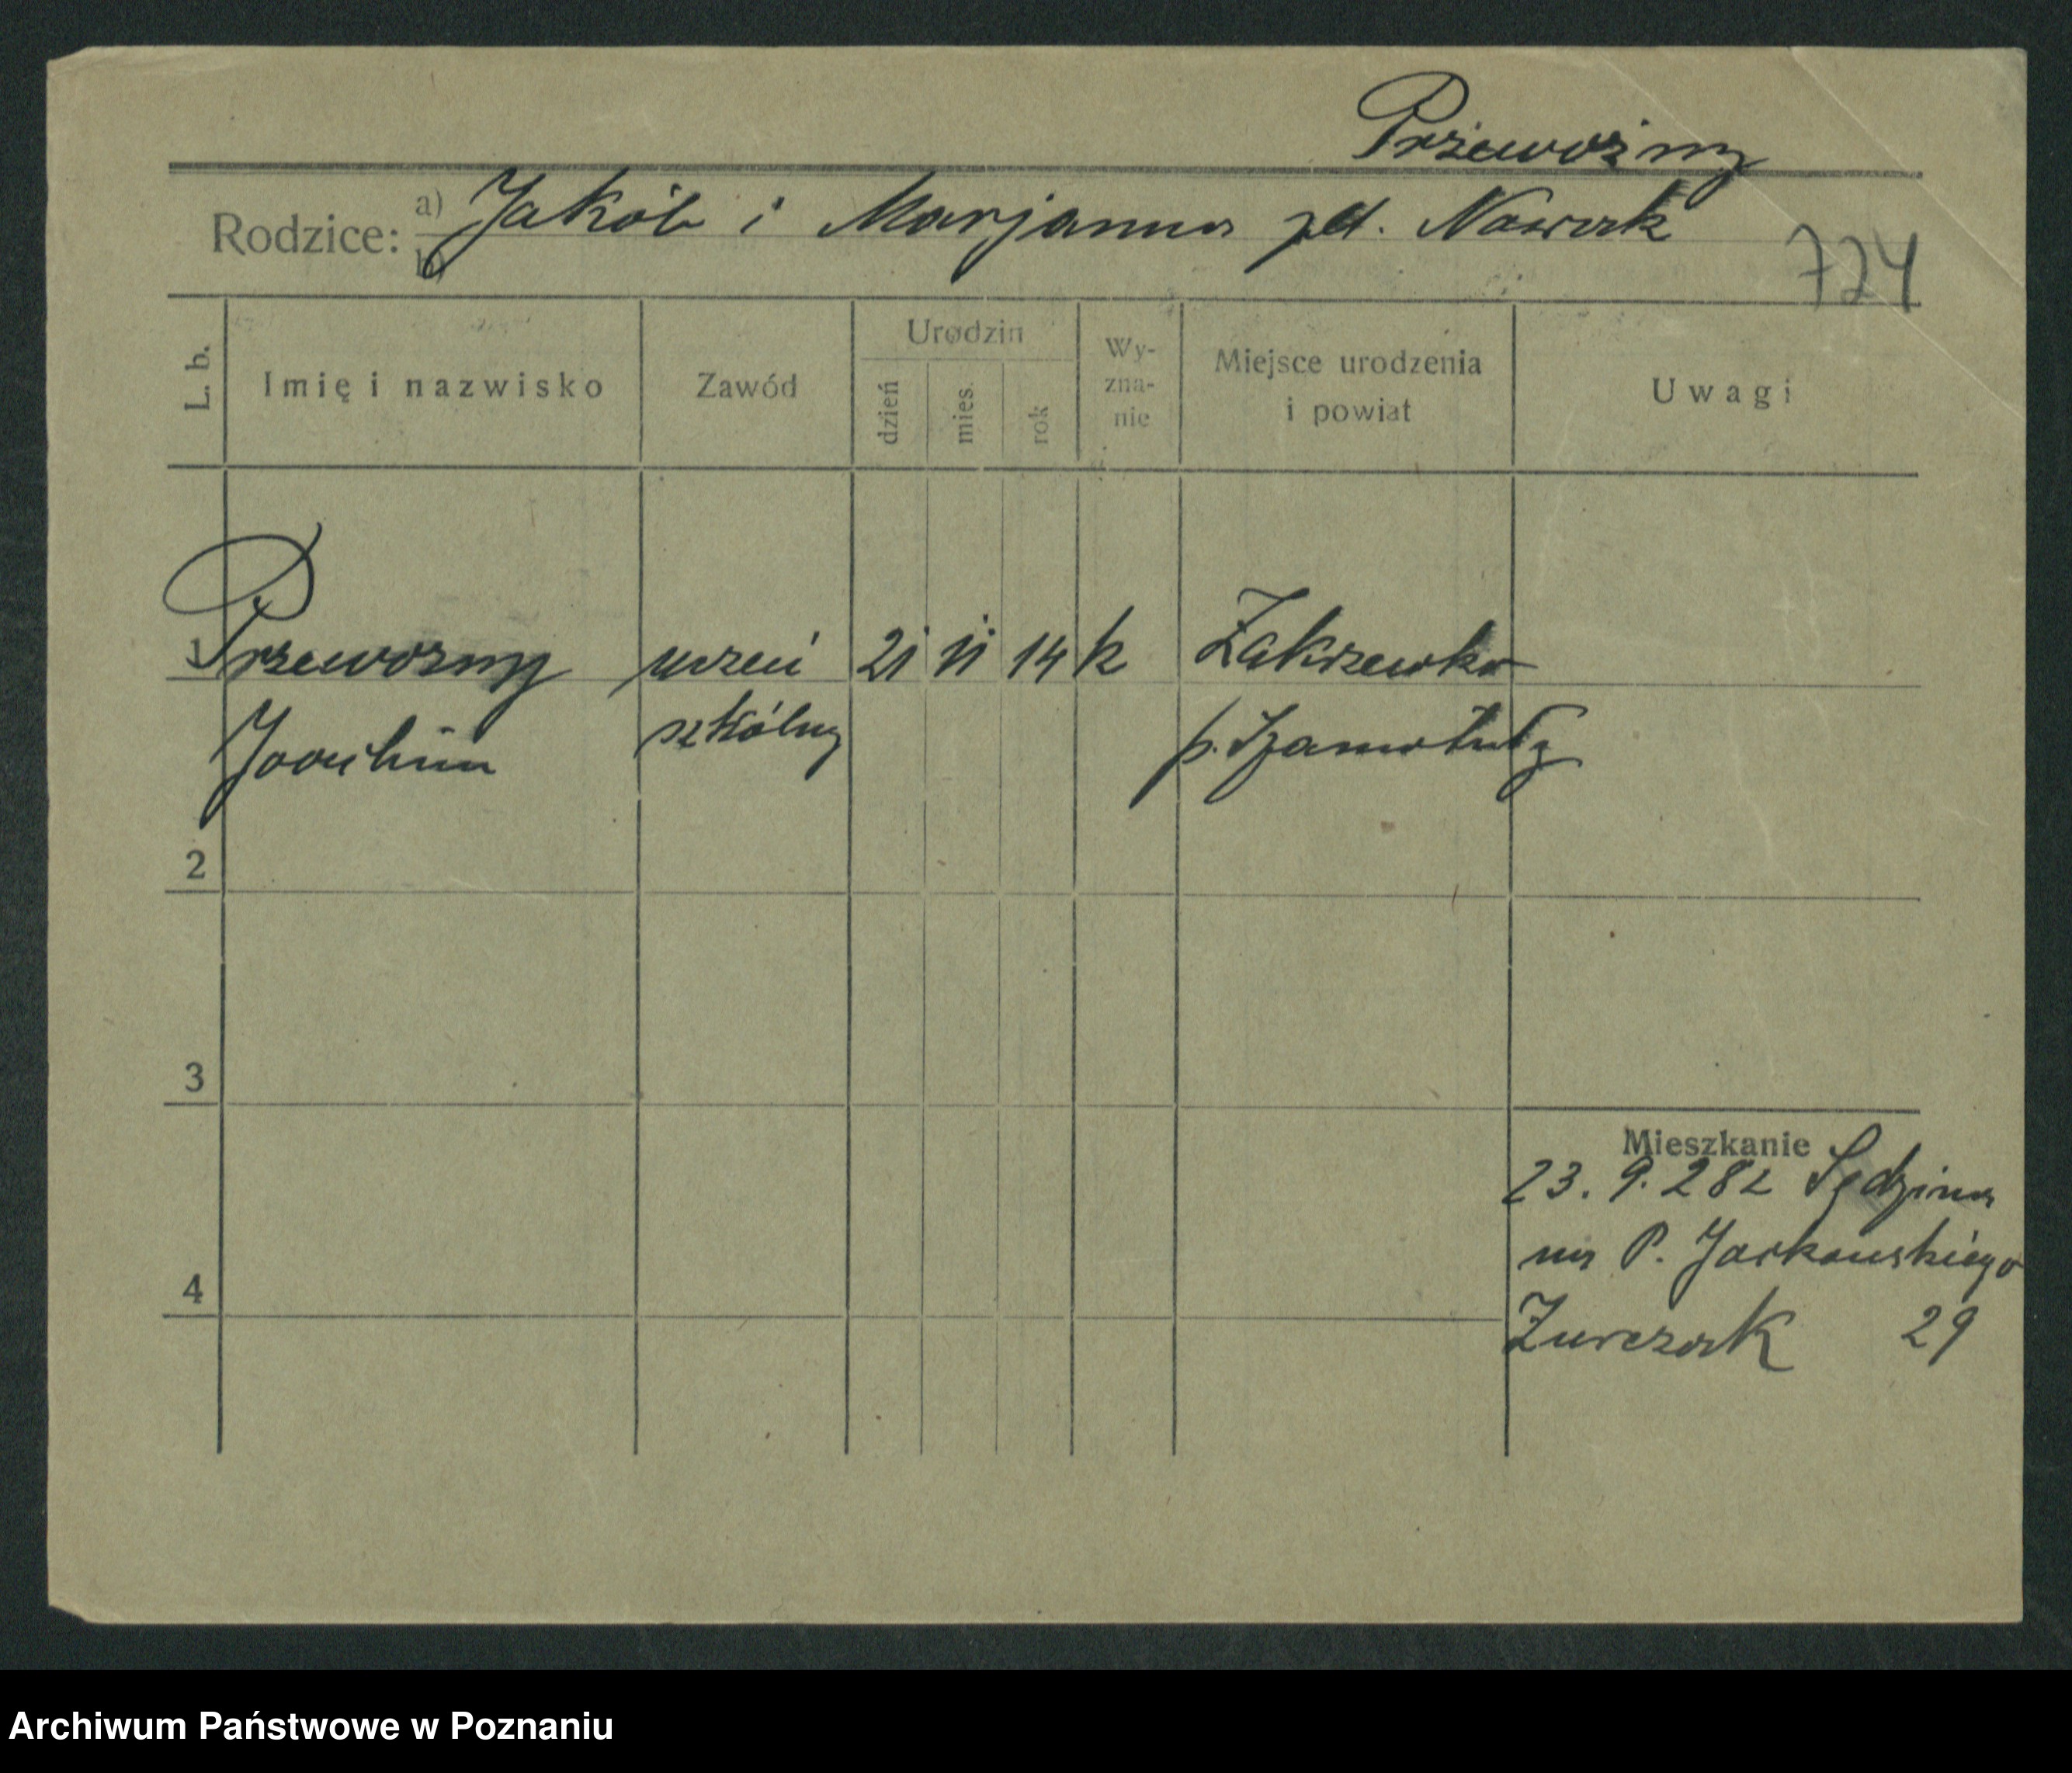 Przewoźny
Rodzice: a) Jakób i Marjanna zd. Nowak
b)
724
L. b. Imię i nazwisko Zawód Urodzin dzień mies. rok Wy-zna-nie Miejsce urodzenia i powiat Uwagi
1 Przewozny uczeń 21 VI 14 k Zakrzewko
Joachim szkólny p. Szamotuły
2
3
Mieszkanie
23. 9. 28 z Sędzina
na P. Jackowskiego
4
29
Archiwum Państwowe w Poznaniu